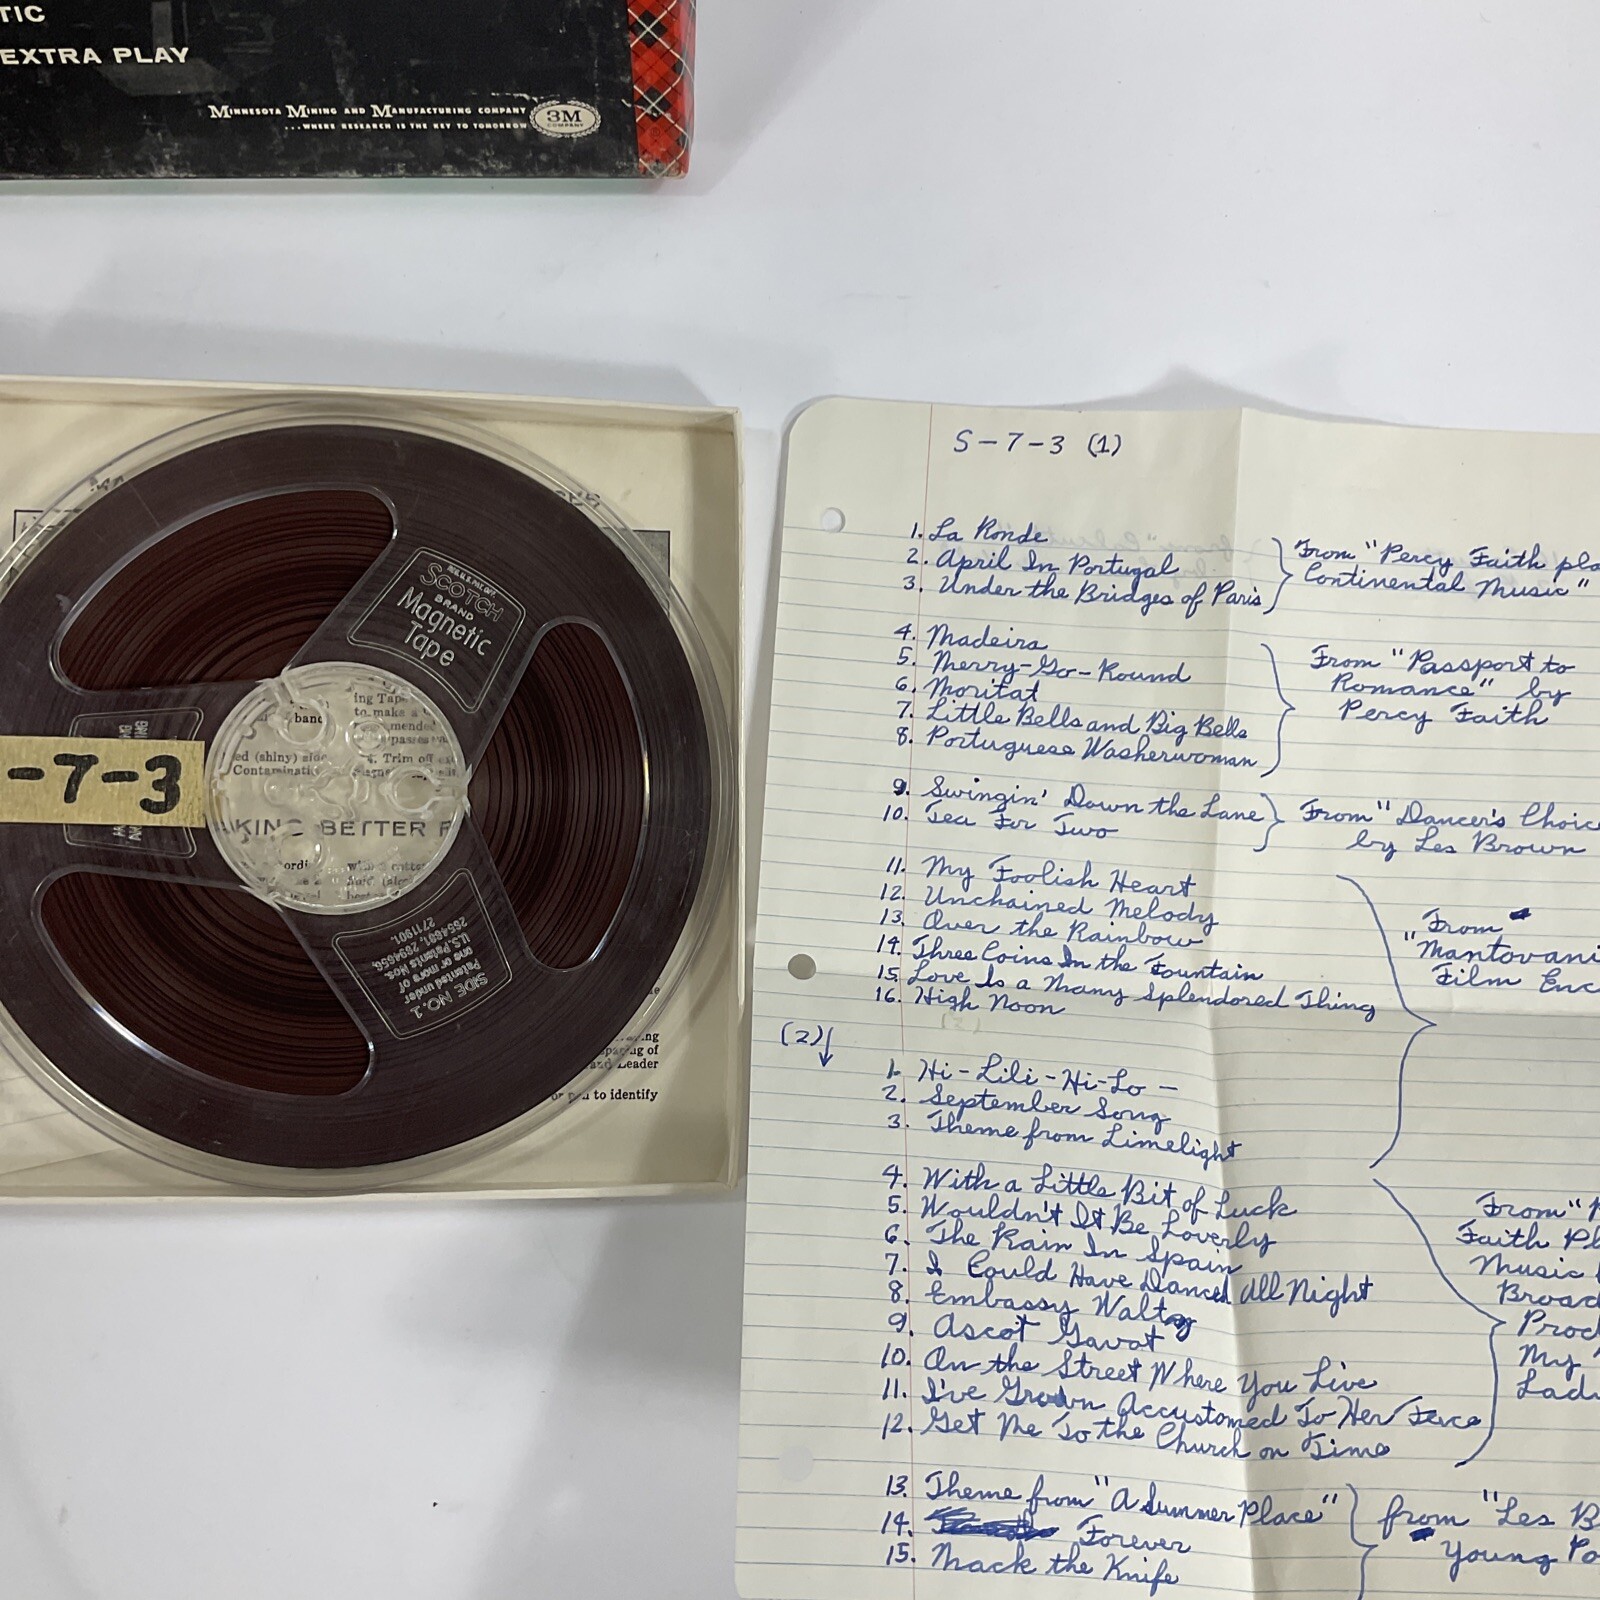 TIC
EXTRA PLAY
MINNESOTA MINING AND MANUFACTURING COMPANY
...WHERE RESEARCH IS THE KEY TO TOMORROW
3M
COMPANY
-7-3
SCOTCH
BRAND
Magnetic
Tape
ing Tape
to make a
band
ed (shiny) side
Trim off
AKING BETTER
SIDE NO. 1
Patented under
one or more of
U.S. Patents Nos.
2654681, 2694656,
2711901.
spacing of
and Leader
to identify
S-7-3 (1)
1. La Ronde
2. April In Portugal
3. Under the Bridges of Paris
From "Percy Faith pla
Continental Music"
4. Madeira
5. Merry-Go-Round
6. Moritat
7. Little Bells and Big Bells
8. Portuguese Washerwoman
From "Passport to
Romance" by
Percy Faith
9. Swingin' Down the Lane
10. Tea For Two
From "Dancer's Choice
by Les Brown
11. My Foolish Heart
12. Unchained Melody
13. Over the Rainbow
14. Three Coins In the Fountain
15. Love Is a Many Splendored Thing
16. High Noon
From
"Mantovani
Film Enc
(2)
1. Hi-Lili-Hi-Lo -
2. September Song
3. Theme from Limelight
4. With a Little Bit of Luck
5. Wouldn't It Be Loverly
6. The Rain In Spain
7. I Could Have Danced All Night
8. Embassy Waltz
9. Ascot Gavot
10. On the Street Where You Live
11. I've Grown Accustomed To Her Face
12. Get Me To the Church on Time
From "P
Faith Pl
Music
Broad
Prod
My
Lad
13. Theme from "A Summer Place"
14. Forever
15. Mack the Knife
from "Les B
Young Po